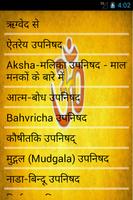 4:03
ऋग्वेद से
ऐतरेय उपनिषद
Aksha-मलिका उपनिषद - माल
मनकों के बारे में
आत्म-बोध उपनिषद
Bahvricha उपनिषद
कौषीतकि उपनिषद
मुद्गल (Mudgala) उपनिषद
नाडा-बिन्दु उपनिषद